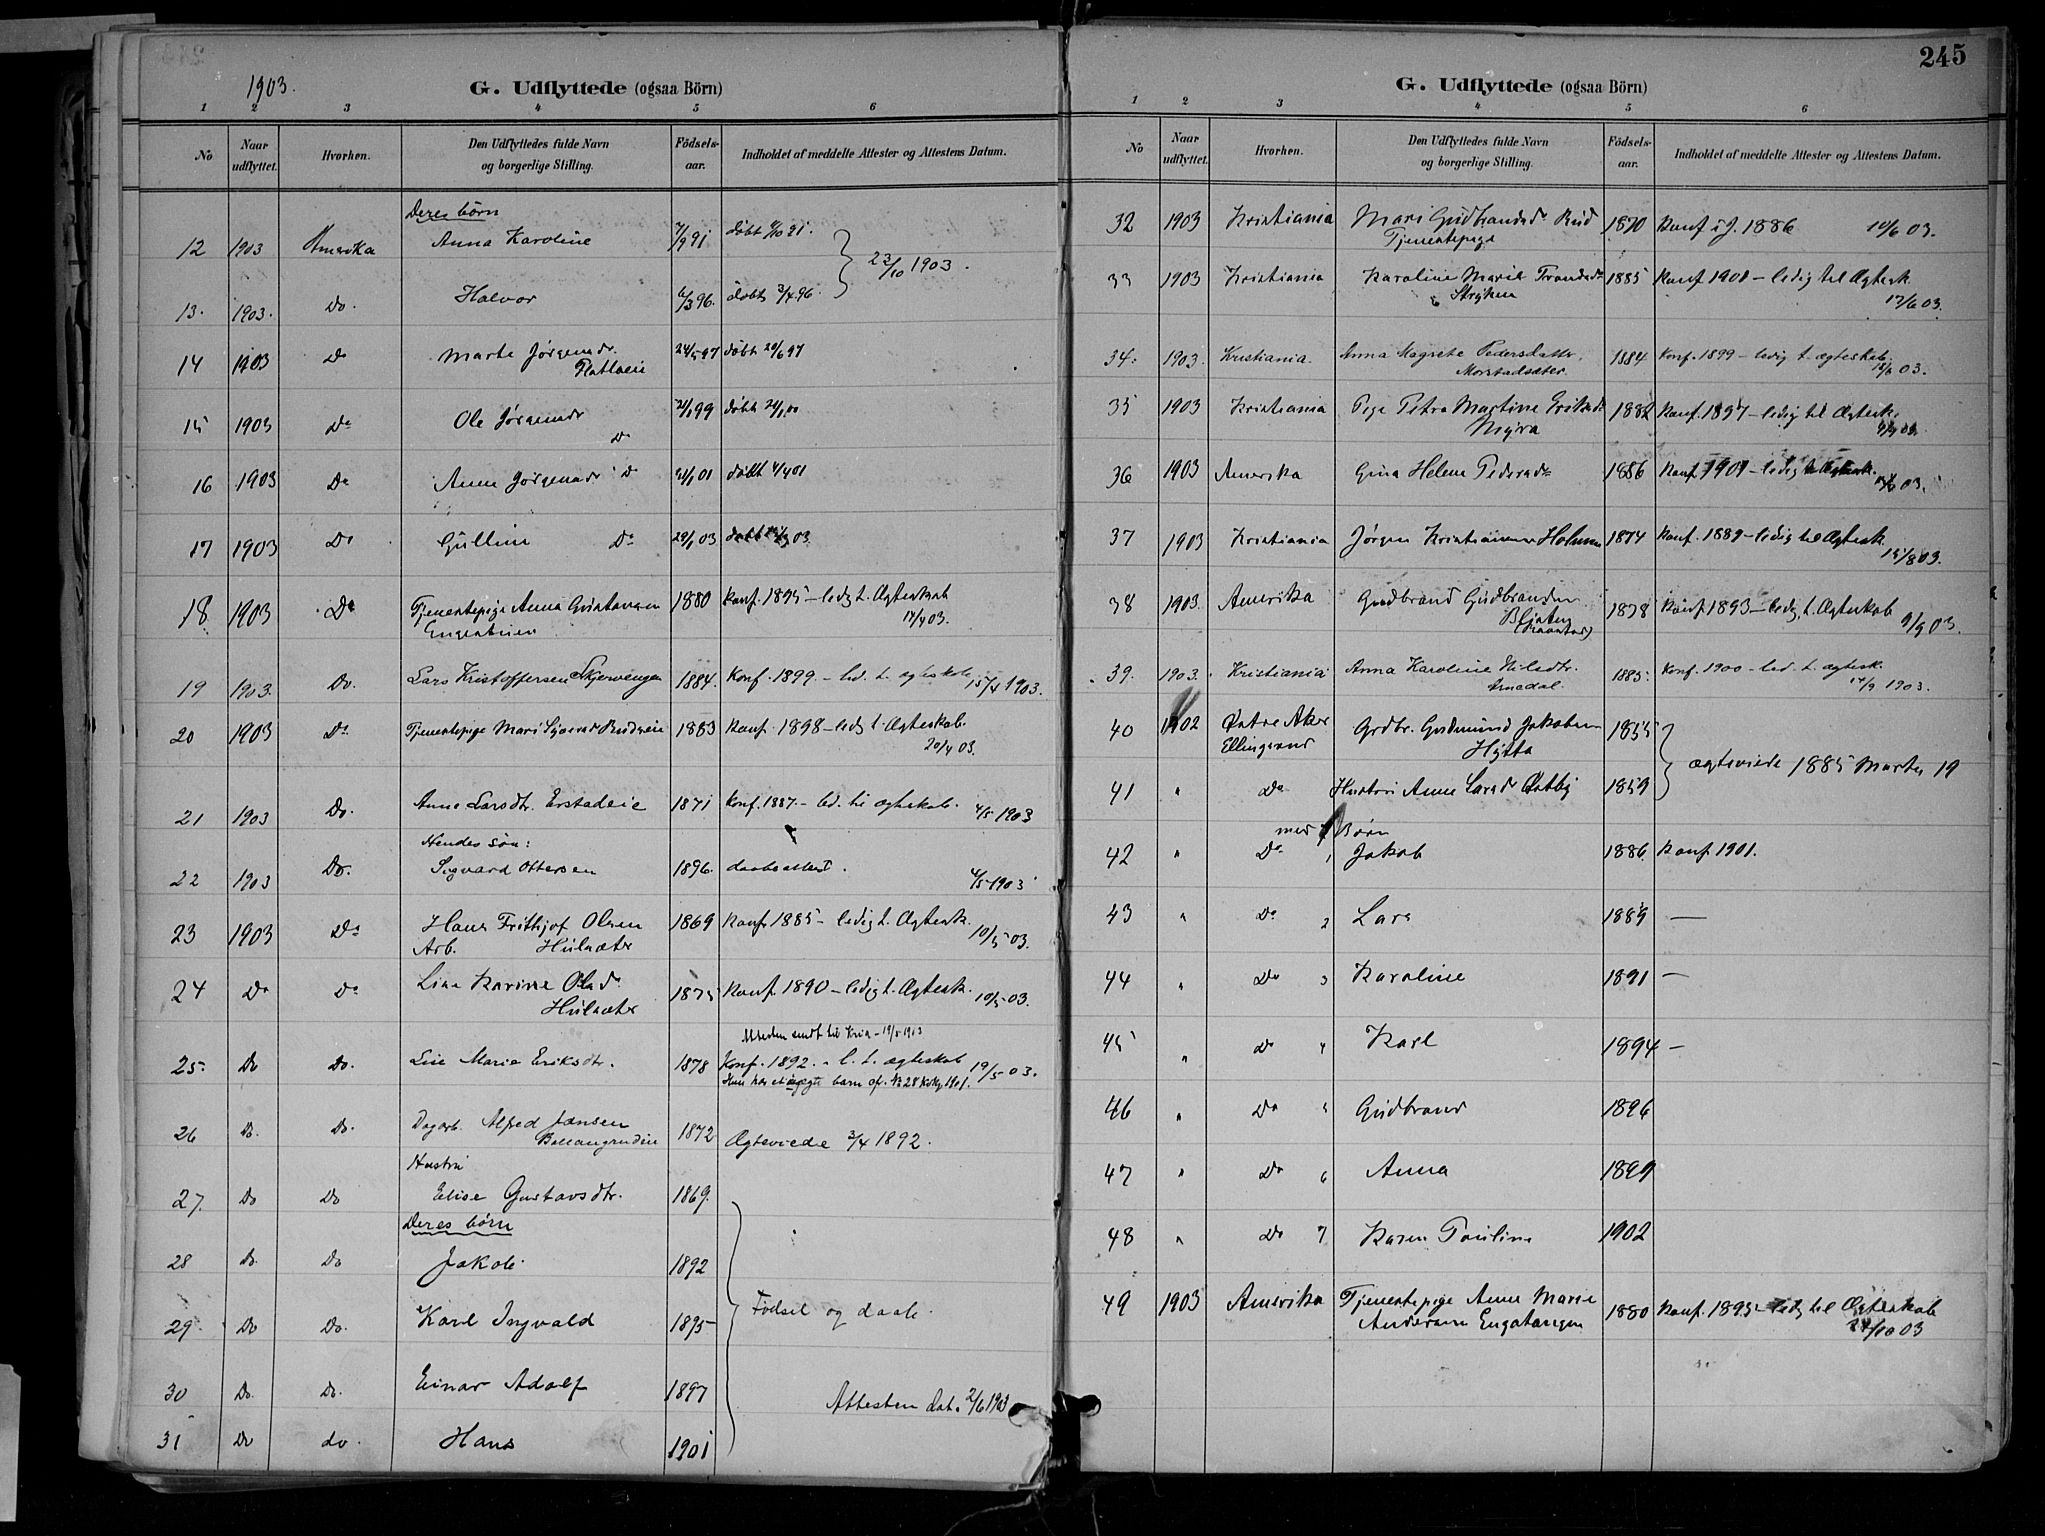 1903.
G. Udflyttede (ogsaa Börn)
1 2 3 4 5 6
No
Naar udflyttet.
Hvorhen.
Den Udflyttedes fulde Navn og borgerlige Stilling.
Födsels-aar.
Indholdet af meddelte Attester og Attestens Datum.
Deres börn
12 1903 Amerika Anna Karoline 7/9 91 döbt 4/10 91.
23/10 1903.
13. 1903. Do. Halvor 6/3 96. döbt 3/4 96.
14 1903 Do Marte Jörgensd. 24/5 97 döbt 20/6 97
15 1903 Do Ole Jörgensdr Do döbt
16 1903 Do Anne Jörgensdr Do döbt 4/4 01
17 1903 Do Gulline Do 29/1 03 döbt
18 1903 Do Tjenestepige Anna Gustavsen 1880 Konf. 1895 – ledig t. Ægteskab
17/4 03.
19 1903. Do. Lars Kristoffersen Skjervengen 1884. Konf. 1899. – led. t. ægteskab 15/4 1903.
20 1903 Do Tjenestepige Mari Rudseie 1883 Konf. 1898 – ledig t. Ægteskab.
20/4 03.
21 1903 Do. Anne Larsdtr. Erstadeie 1871 Konf. 1887. – led. til ægteskab. 4/5 1903
Hendes sön:
22 1903 Do. Sigvard Ottersen 1896. daabsattest. 4/5 1903
23 1903 Do Hans Frithjof Olsen 1869 Konf. 1885 – ledig t. Ægtesk.
Arb. Hulsæter 10/5 03.
24 Do Do Line Karine Olsd. 1875 Konf. 1890 – ledig t. Ægtesk. 10/5 03.
Hulsæter
Attesten sendt til Kria – 19/5 1903
25. Do Do. Lise Marie Eriksdtr. 1878 Konf. 1892. – l. t. ægteskab 19/5 03.
Hun har et uægte barn
26 Do. Do. Dagarb. Alfred Jansen 1872 Ægteviede 3/4 1892.
Hustru
27. Do Do Elise Gustavsdtr. 1869.
Deres börn
28 Do. Do Jakob. 1892
29. Do Do. Karl Ingvald 1895 Födsel og daab.
30 Do. Do. Einar Adolf 1897
Attesten dat. 2/6 1903
31 Do do. Hans 1901
245
G. Udflyttede (ogsaa Börn)
1 2 3 4 5 6
No
Naar udflyttet.
Hvorhen.
Den Udflyttedes fulde Navn og borgerlige Stilling.
Födsels-aar.
Indholdet af meddelte Attester og Attestens Datum.
32 1903 Kristiania Mari Gudbrandsd. Rud 1870 Konf. i J. 1886 10/6 03.
Tjenestepige
33 1903 Kristiania Karoline Marie Trondsd. 1885 Konf. 1901 – ledig til Ægtesk.
Stryken 17/6 03.
34. 1903. Kristiania. Anna Magrete Pedersdatter, 1884 Konf. 1899 – ledig t. ægteskab.
Morstadsæter. 18/6 03.
35 1903 Kristiania Pige Petra Martine Eriksd. 1882 Konf. 1897 – ledig til Ægtesk.
Myra
36 1903 Amerika Gina Helene Pedersdr 1886 Konf. 1901 – ledig til Ægtesk.
37 1903 Kristiania Jörgen Kristiansen Holmen 1874 Konf. 1889 – ledig til Ægtesk.
15/8 03.
38 1903. Amerika Gudbrand Gudbrandsen 1878 Konf. 1893 – ledig t. Ægteskab
9/9 03.
39. 1903. Kristiania Anna Karoline Nilsdtr. 1885. Konf. 1900 – led. t. ægtesk.
17/9 1903.
40 1902 Östre Aker Grdbr. Gudmund Jakobsen 1855
Ellingsrud Hytta
ægteviede 1885 Marts 19
41 " Do Hustru Anne Larsd. Östby 1859
med 7 Börn
42 " Do 1 Jakob 1886 Konf 1901.
43 " Do 2 Lars 1889 —
44 " Do 3 Karoline 1891 —
45 " Do 4 Karl 1894 —
46 " Do 5 Gudbrand 1896
47 " Do 6 Anna 1899
48 " Do 7 Karen Pauline 1902
49 1903 Amerika Tjenestepige Anne Marie 1880 Konf. 1895 – ledig til Ægteskab
Andersen Engatangen 24/10 03